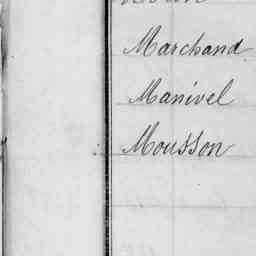 Marchand
Manivel
Mousson